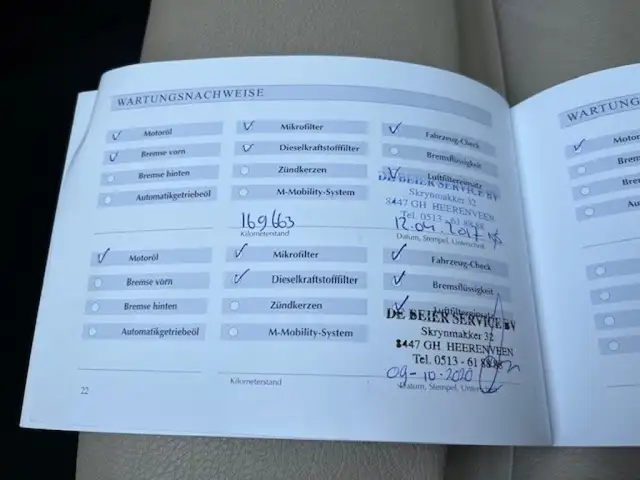 WARTUNGSNACHWEISE
Motoröl
Mikrofilter
Fahrzeug-Check
Bremse vorn
Dieselkraftstofffilter
Bremsflüssigkeit
Bremse hinten
Zündkerzen
Luftfiltereinsatz
Automatikgetriebeöl
M-Mobility-System
DE BEIER SERVICE BV
Skrynmakker 32
8447 GH HEERENVEEN
Tel. 0513 - 61 88 88
169663
12.04.2017
Kilometerstand
Datum, Stempel, Unterschrift
Motoröl
Mikrofilter
Fahrzeug-Check
Bremse vorn
Dieselkraftstofffilter
Bremsflüssigkeit
Bremse hinten
Zündkerzen
Luftfiltereinsatz
Automatikgetriebeöl
M-Mobility-System
DE BEIER SERVICE BV
Skrynmakker 32
8447 GH HEERENVEEN
Tel. 0513 - 61 88 88
09-10-2020
Kilometerstand
Datum, Stempel,
22
WARTUNG
Motor
Brem
Brem
Au